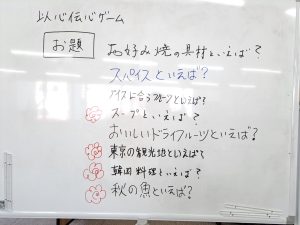 以心伝心ゲーム
お題
お好み焼の具材といえば?
スパイスといえば?
アイスに合うフルーツといえば?
スープといえば?
おいしいドライフルーツといえば?
東京の観光地といえば?
韓国料理といえば?
秋の魚といえば?